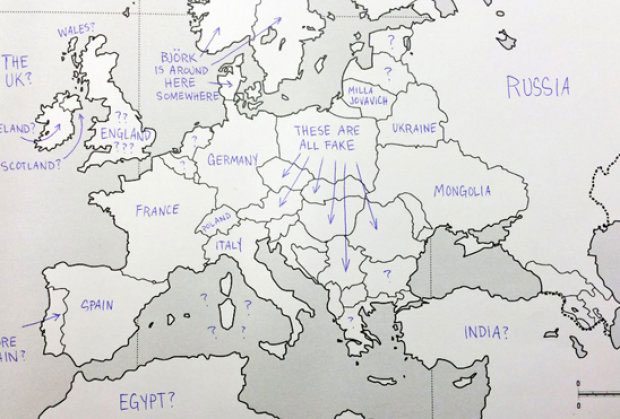 WALES?
THE
UK?
BJÖRK
IS AROUND
HERE
SOMEWHERE
?
?
MILLA
JOVAVICH
RUSSIA
ELAND?
SCOTLAND?
??
ENGLAND
???
?
?
GERMANY
THESE ARE
ALL FAKE
UKRAINE
FRANCE
POLAND
ITALY
MONGOLIA
SPAIN
ORE
AIN?
?
?
?
?
?
?
INDIA?
EGYPT?
0
0